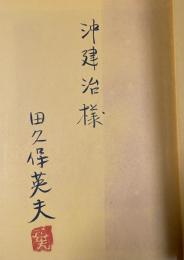 沖建治様
田久保英夫